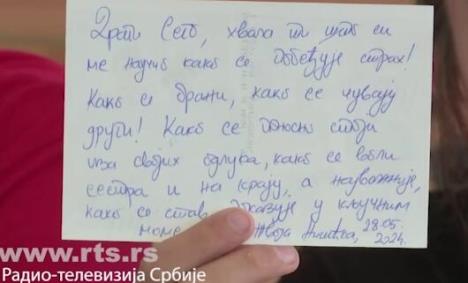 Драги Сето, хвала ти што си
ме научио како се побеђује страх!
Како се брани, како се чувају
други! Како се поносно стоји
иза својих одлука, како се воли
сестра и на крају, а најважније,
како се став показује у кључним
28.05.
2024.
www.rts.rs
Радио-телевизија Србије